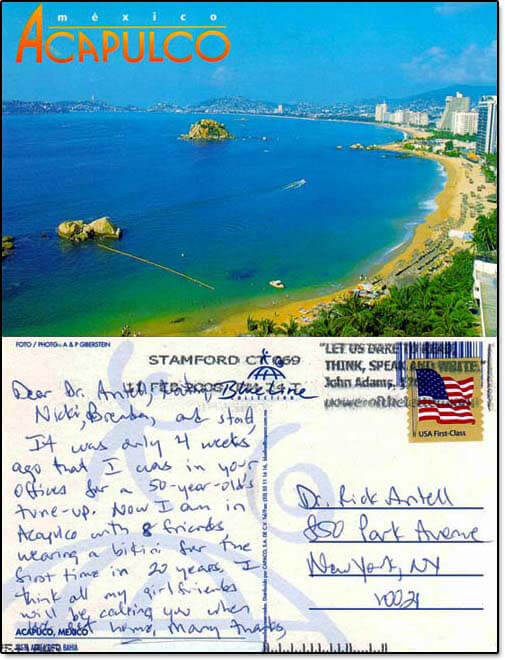 méxico
ACAPULCO
FOTO / PHOTO: A & P GIBERSTEIN
STAMFORD CT 069
10 FEB
"LET US DARE TO READ,
THINK, SPEAK AND WRITE."
John Adams,
USA First-Class
Blue Line
COLLECTION
Dear Dr. Antell,
Nicki, Brendan, and staff
It was only 4 weeks
ago that I was in your
offices for a 50-year-old's
tune-up. Now I am in
Acapulco with 8 friends
wearing a bikini for the
first time in 20 years. I
think all my girlfriends
will be calling you when
we get home, Many thanks
Dr. Rick Antell
850 Park Avenue
New York, NY
10021
ACAPULCO, MEXICO